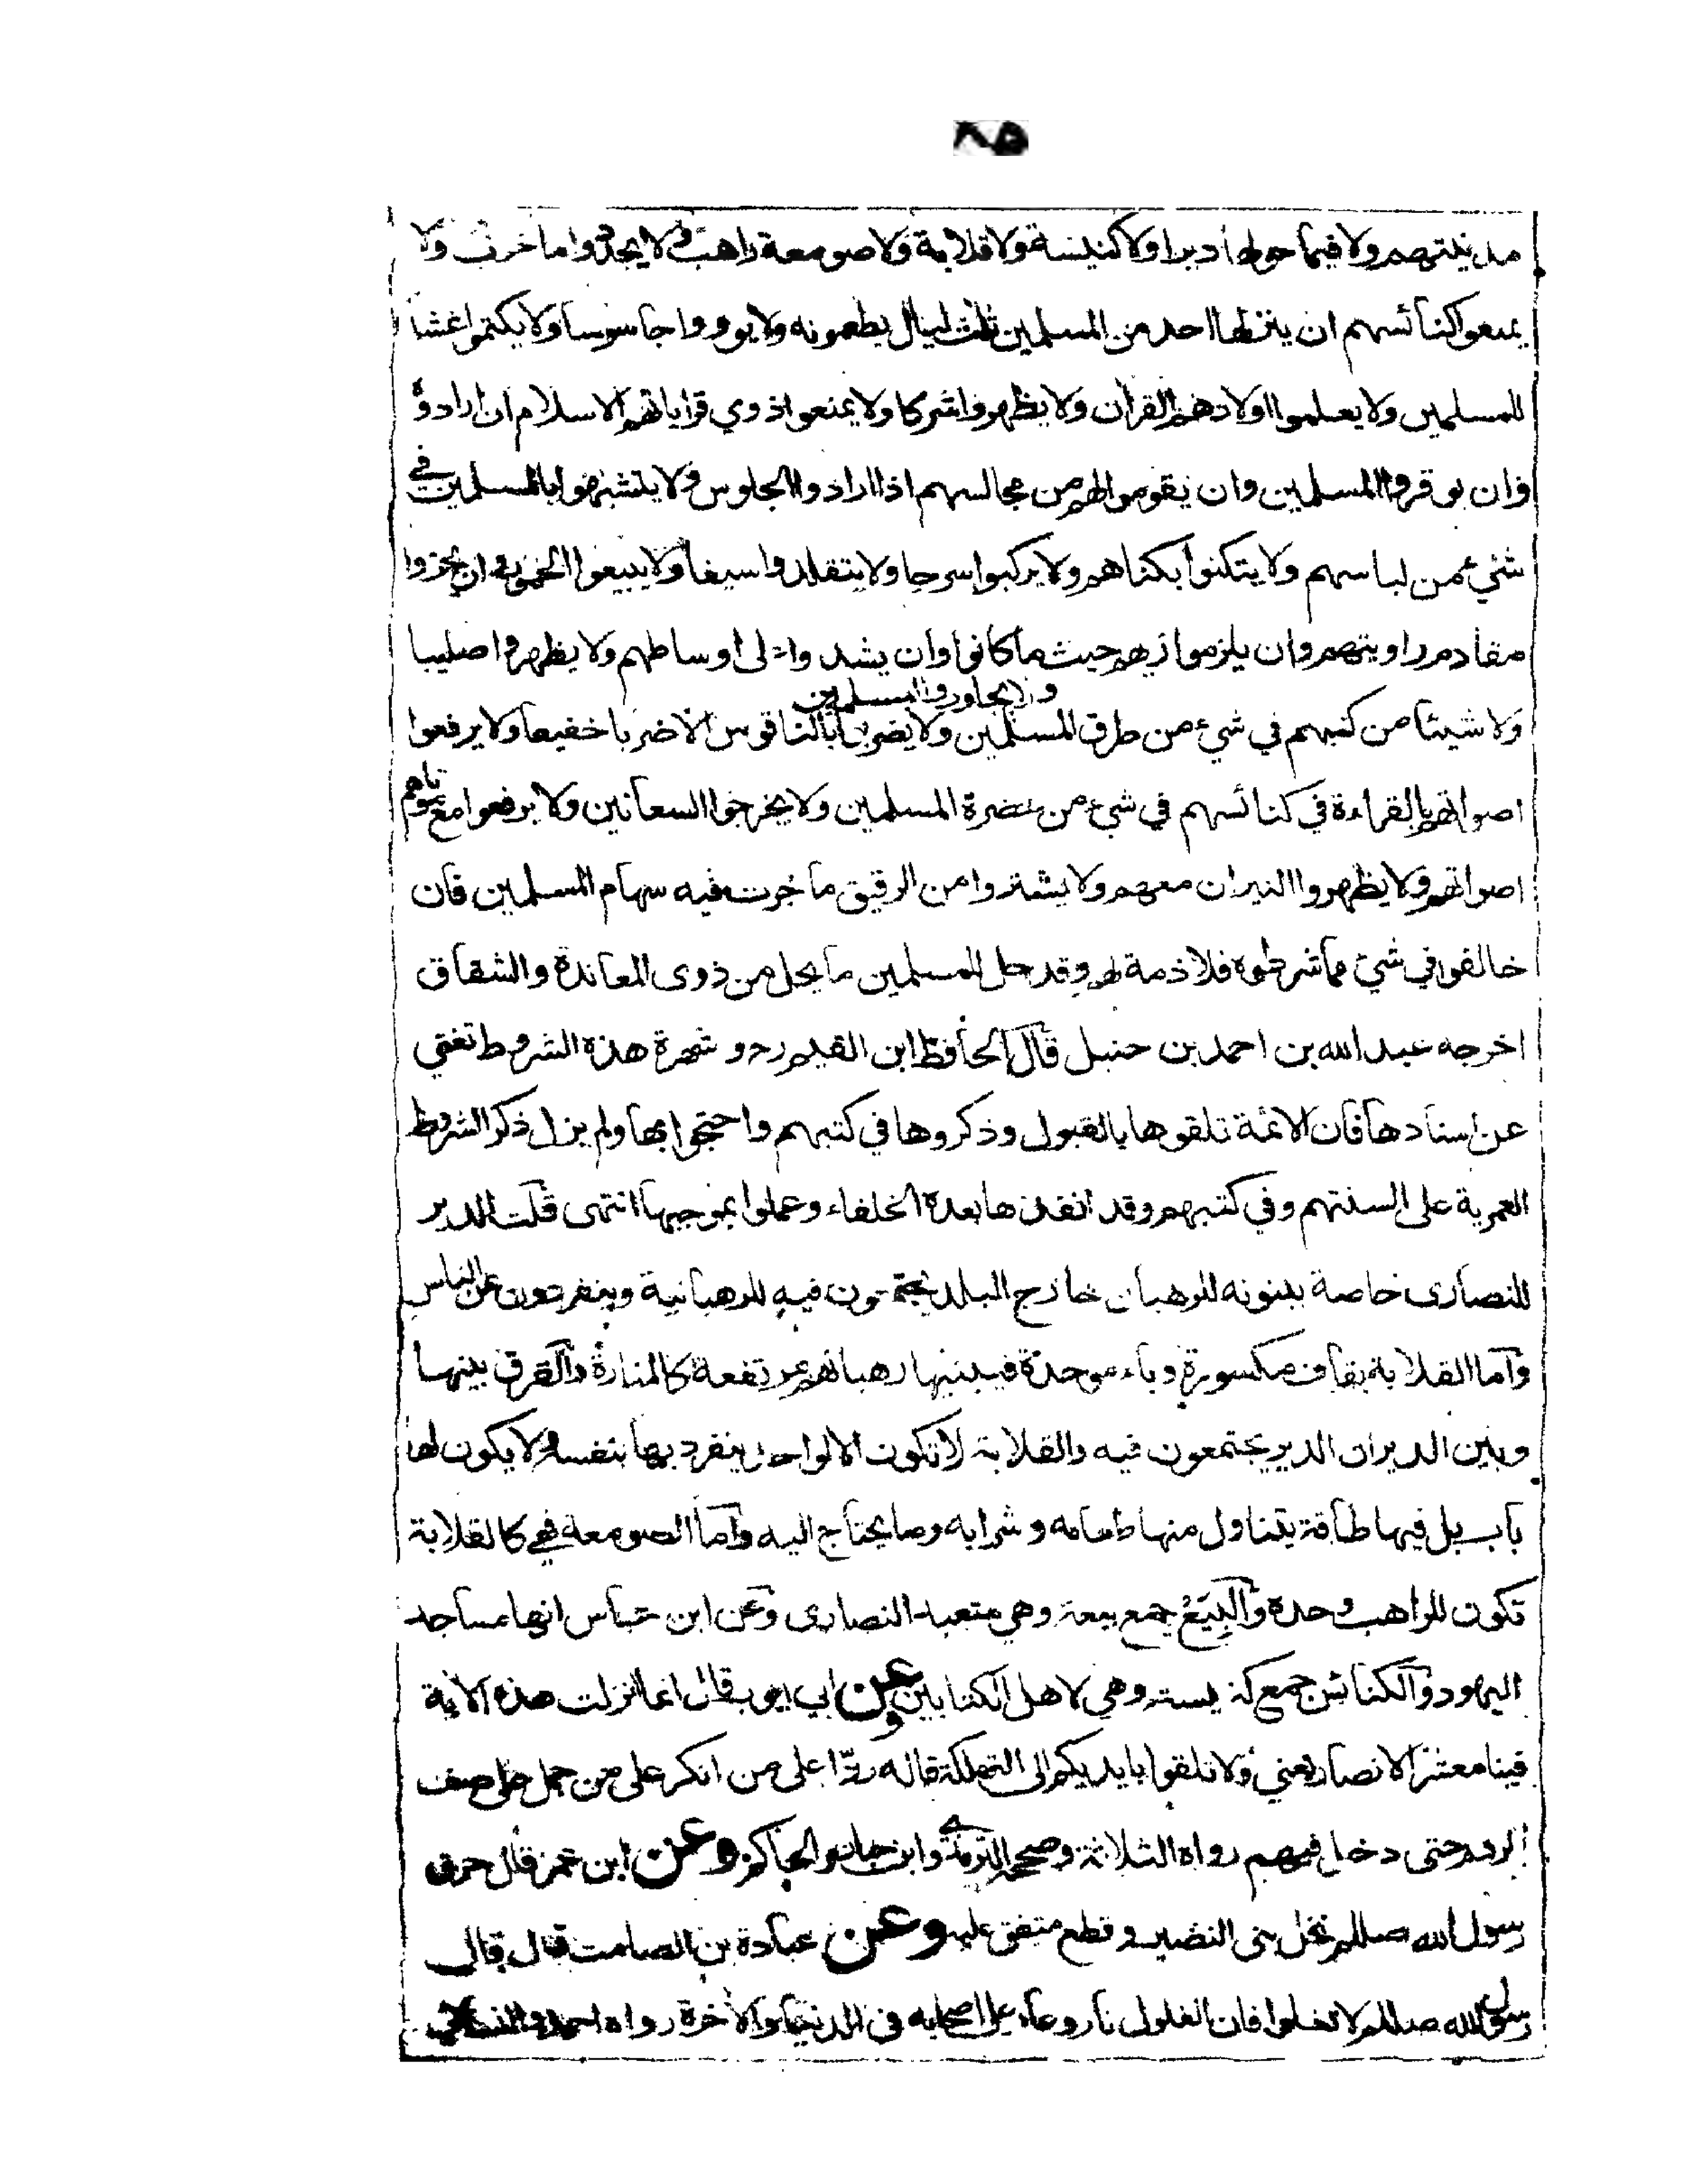 ٨٥
مدينتهم ولا فيما حولها ديرا ولا كنيسة ولا قلاية ولا صومعة راهب ولا يجددوا ما خرب ولا
يمنعوا كنائسهم ان ينزلها احد من المسلمين ثلث ليال يطعمونه ولا يووا جاسوسا ولا يكتموا غشا
للمسلمين ولا يعلموا اولادهم القرآن ولا يظهروا شركا ولا يمنعوا ذوي قراباتهم الاسلام ان ارادوه
وان يوقروا المسلمين وان يقوموا لهم من مجالسهم اذا ارادوا الجلوس ولا يتشبهوا بالمسلمين في
شيء من لباسهم ولا يتكنوا بكناهم ولا يركبوا سرجا ولا يتقلدوا سيفا ولا يبيعوا الخمور وان يجزوا
مقادم رؤيتهم وان يلزموا زيهم حيث ما كانوا وان يشدوا على اوساطهم ولا يظهروا صليبا
ولا يجاوروا المسلمين
ولا شيئا من كتبهم في شيء من طرق المسلمين ولا يضربوا بالناقوس الا ضربا خفيفا ولا يرفعوا
اصواتهم بالقراءة في كنائسهم في شيء من حضرة المسلمين ولا يخرجوا السعانين ولا يرفعوا مع موتاهم
اصواتهم ولا يظهروا النيران معهم ولا يشتروا من الرقيق ما جرت فيه سهام المسلمين فان
خالفوا في شيء مما شرطوه فلا ذمة لهم وقد حل للمسلمين ما يحل من ذوى المعاندة والشقاق
اخرجه عبد الله بن احمد بن حنبل قال الحافظ ابن القيم رح و شهرة هذه الشروط تغني
عن اسنادها فان الائمة تلقوها بالقبول وذكروها في كتبهم واحتجوا بها ولم يزل ذكر الشروط
العمرية على السنتهم وفي كتبهم وقد انفذها بعده الخلفاء وعملوا بموجبها انتهى قلت الدير
للنصارى خاصة يبنونه للرهبان خارج البلد يجتمعون فيه للرهبانية وينفردون عن الناس
واما القلاية بقاف مكسورة وباء موحدة فيبنيها رهبانهم مرتفعة كالمنارة والفرق بينها
وبين الدير ان الدير يجتمعون فيه والقلاية لا تكون الا لواحد ينفرد بها بنفسه ولا يكون لها
باب بل فيها طاقة يتناول منها طعامه و شرابه وما يحتاج اليه واما الصومعة فهي كالقلاية
تكون للراهب وحده والبِيَع جمع بيعة وهي متعبد النصارى وعن ابن عباس انها مساجد
اليهود والكنائس جمع كنيسة وهي لاهل الكتابين وعن ابي ايوب قال انما نزلت هذه الاية
فينا معشر الانصار يعني ولا تلقوا بايديكم الى التهلكة قاله ردّا على من انكر على من حمل على صف
الروم حتى دخل فيهم رواه الثلاثة وصححه الترمذي وابن حبان والحاكم وعن ابن عمر قال حرق
رسول الله صللم نخل بني النضير و قطع متفق عليه وعن عبادة بن الصامت قال قال
رسول الله صللم لا تغلوا فان الغلول نار وعار على اصحابه في الدنيا والاخرة رواه احمد والنسائي